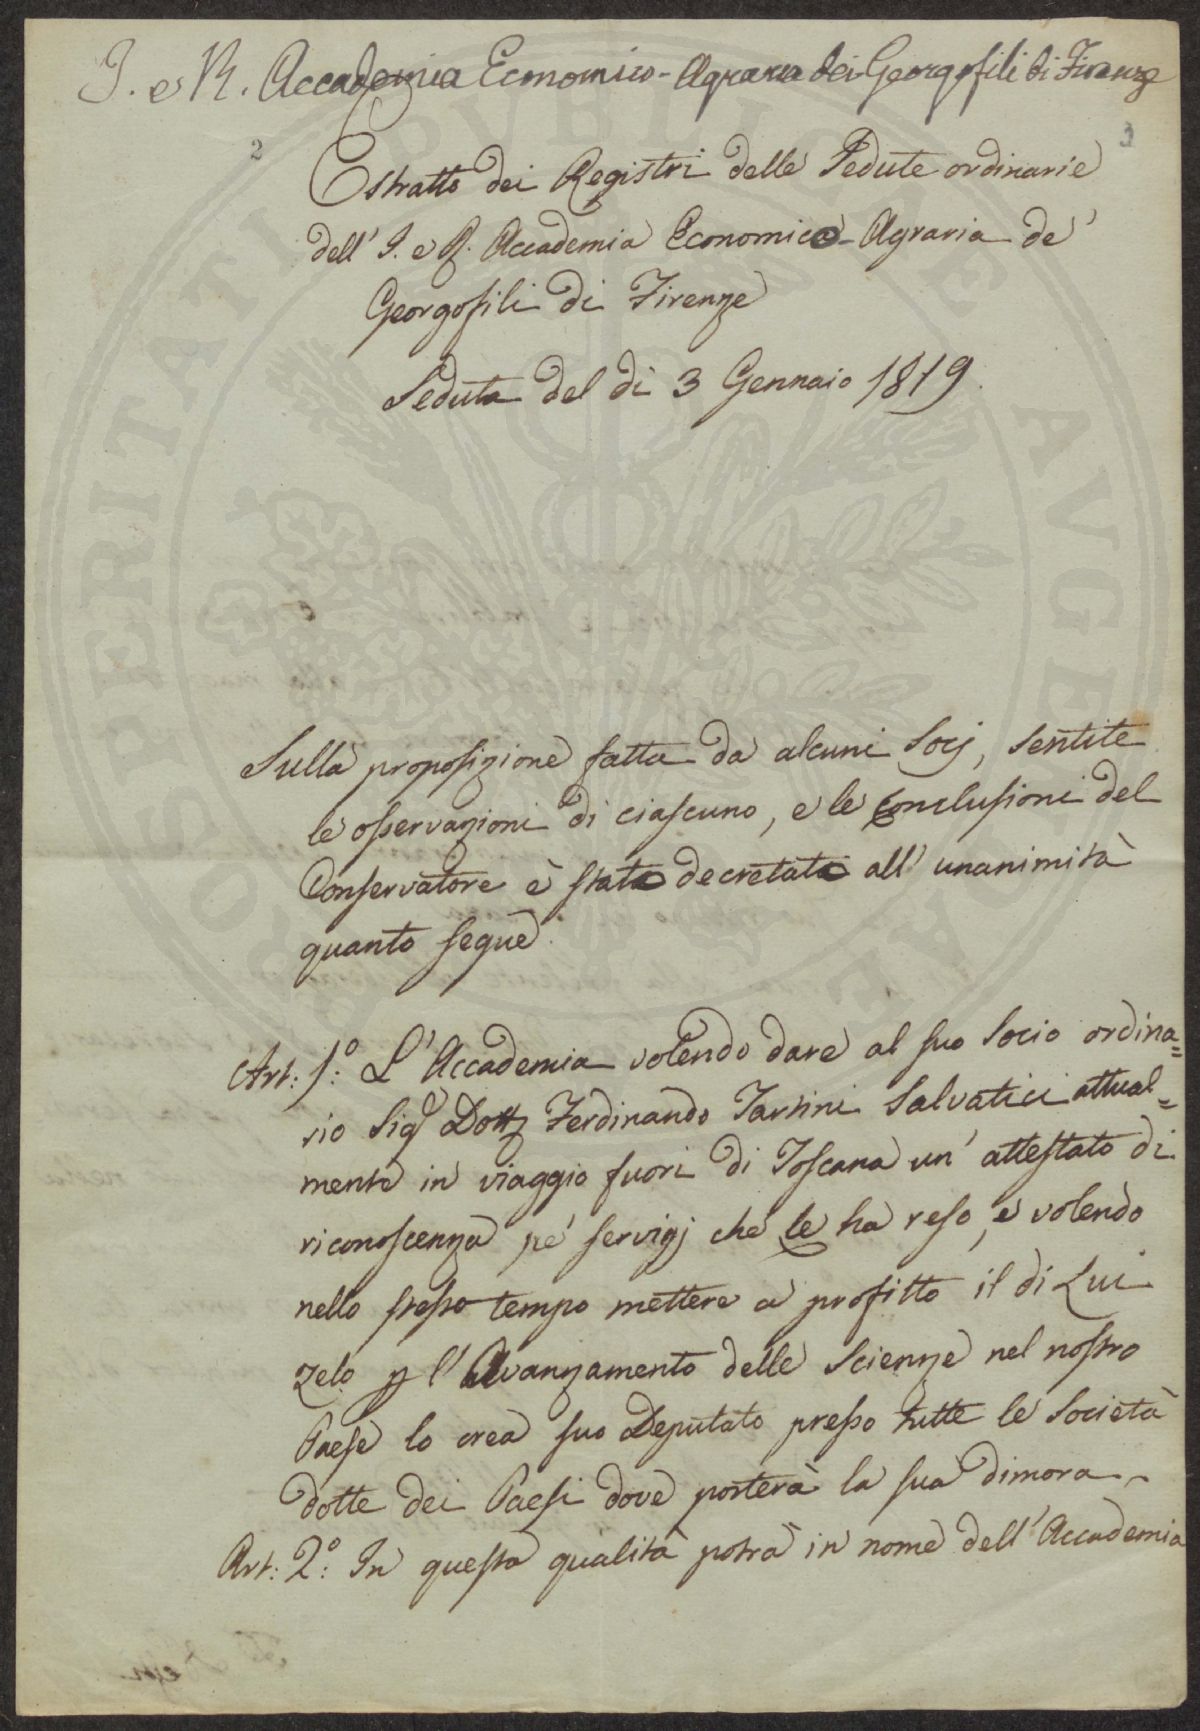 I. e R. Accademia Economico-Agraria dei Georgofili di Firenze
2
3
Estratto dei Registri delle Sedute ordinarie
dell' I. e R. Accademia Economico-Agraria de'
Georgofili di Firenze
Seduta del dì 3 Gennaio 1819.
Sulla proposizione fatta da alcuni Socj, sentite
le osservazioni di ciascuno, e le Conclusioni del
Conservatore è stato decretato all' unanimità
quanto segue.
Art: 1.º L'Accademia volendo dare al suo Socio ordina=
rio Sigr Dott Ferdinando Tartini Salvatici attual=
mente in viaggio fuori di Toscana un' attestato di
riconoscenza pe' servigj che le ha reso, e volendo
nello stesso tempo mettere a profitto il di Lui
zelo p l'Avanzamento delle Scienze nel nostro
Paese lo crea suo Deputato presso tutte le Società
dotte dei Paesi dove porterà la sua dimora.
Art: 2.º In questa qualità potrà in nome dell'Accademia
PROSPERITATI PUBLICAE AUGENDAE